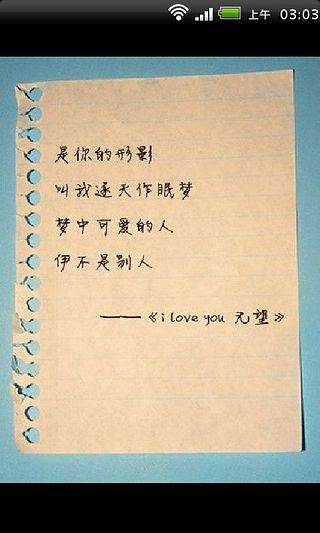 上午 03:03
是你的形影
叫我逐天作眠梦
梦中可爱的人
伊不是别人
——《i love you 无望》